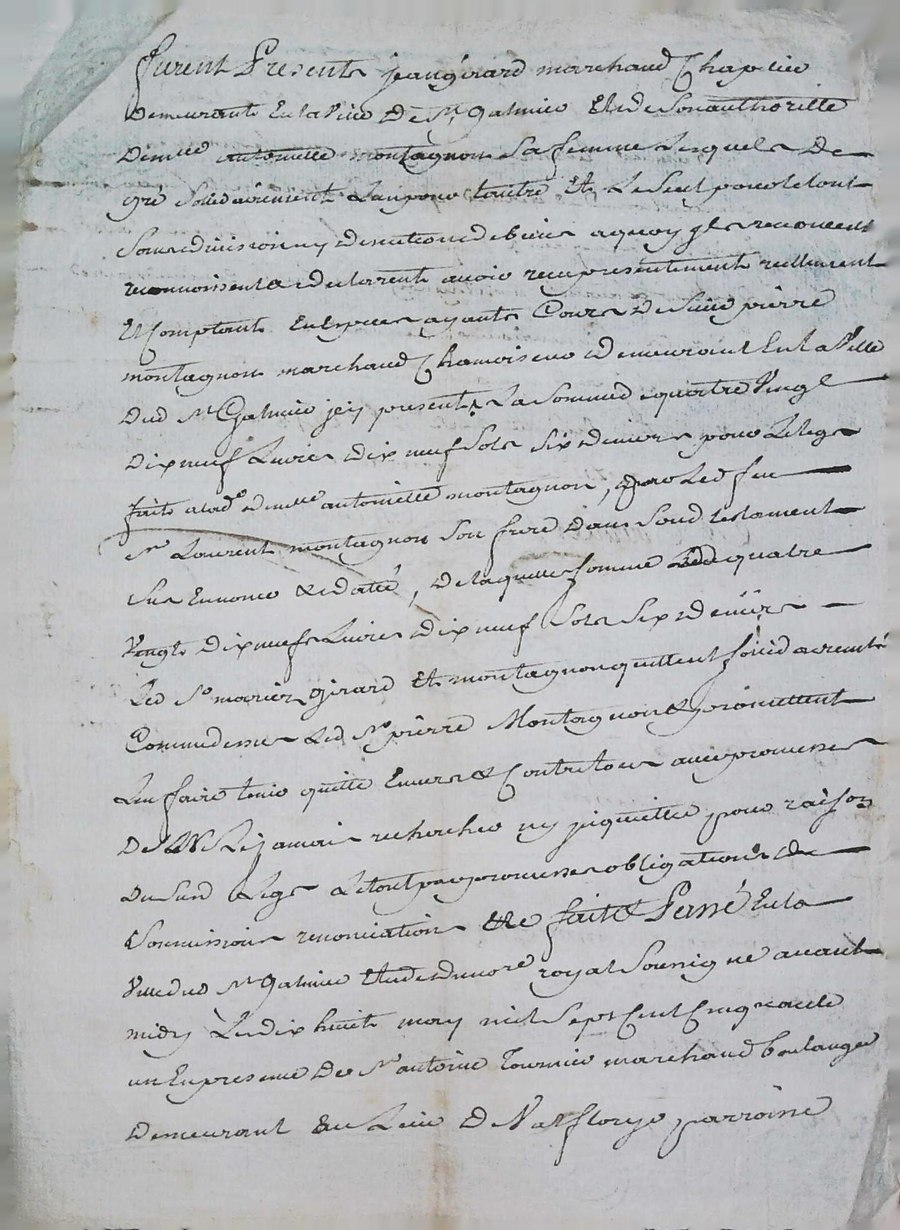 furent Presents jean girard marchand Chapelier
Demeurant En la Ville De St. galmier Et de Son authorité
Demlle antoinette montagnon Sa femme Lesquels De
gré Solidairement L'un pour l'autre Et Le Seul pour le tout
Sans division ny discution de biens a quoy ils renoncent
reconnoissent & declarent avoir reçu presentement reellement
Et Comptant En Espèces ayants Cours De Sieur pierre
montagnon marchand Chamoiseur Demeurant En la Ville
Dud St Galmier jcy present, La Somme de quatre Vingt
Dix neuf Livres dix neuf Sols Six deniers pour Le legs
fait a lad. Demlle antoinette montagnon, par Led feu
Sr Laurent montagnon Son frere Dans Sond testament
Sus Enoncé & datté, De laquelle Somme de quatre
Vingts Dix neuf Livres Dix neuf Sols Six Deniers
Led Sr mariés girard Et montagnon quittent
Comme dessus Led Sr pierre Montagnon & promettent
L'en faire tenir quitte Envers & Contre tous avec promesses
De ne L'en jamais rechercher ny jnquietter pour raison
Du Susd Legs Le tout par promesses obligations
Soumissions renonciations &c fait & Passé En la
Ville dud St galmier Etude du nore royal Soussigné avant
midy Le dix huit may mil Sept Cent Cinquante
un En presence De Sr antoine Fournier marchand boulanger
Demeurant au Lieu De Valfloryе parroisse